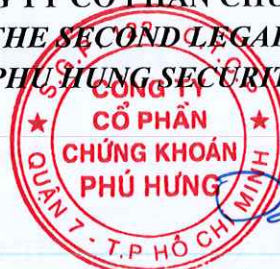 TY CỔ PHẦN
THE SECOND LEGAL
PHU HUNG SECURIT
CÔNG TY
CỔ PHẦN
CHỨNG KHOÁN
PHÚ HƯNG
QUẬN 7 - T.P HỒ CHÍ MINH